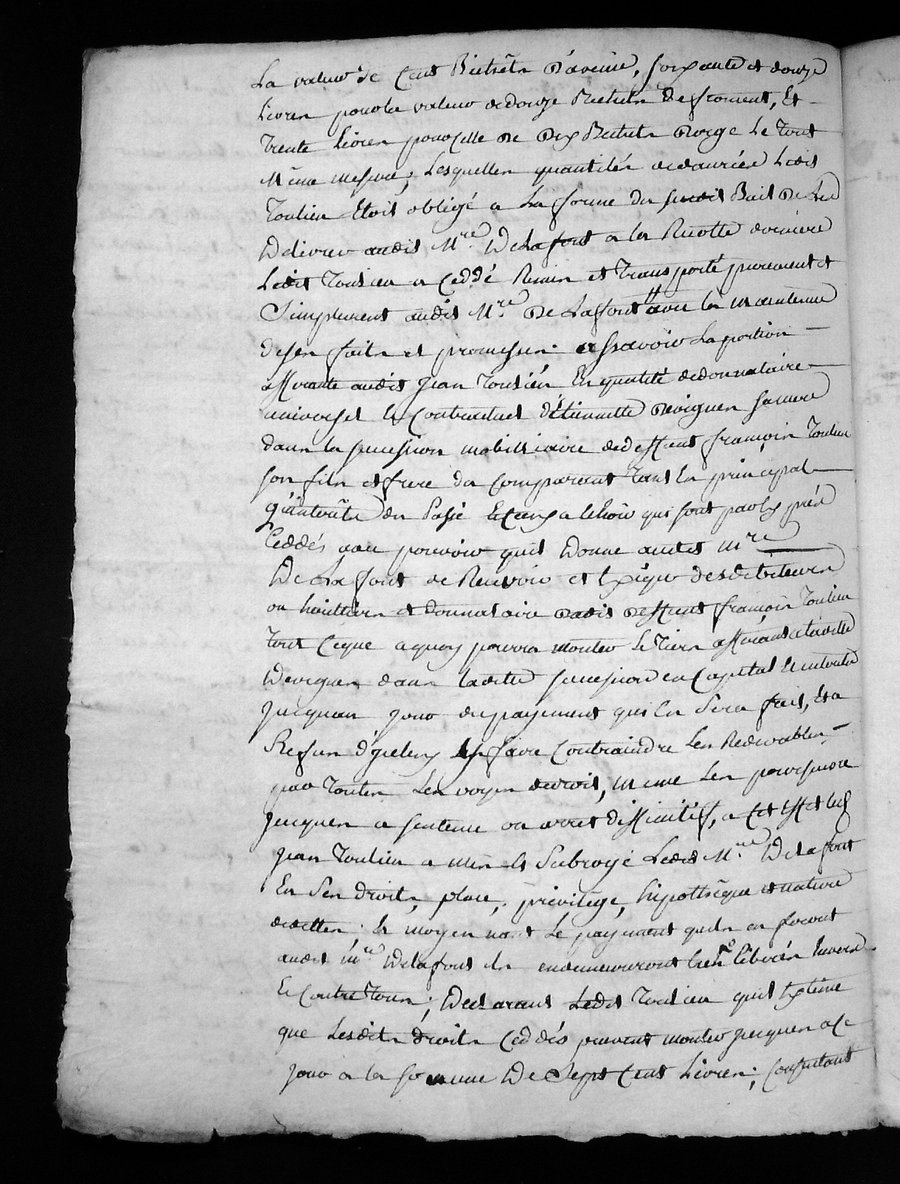 La valeur de Cent Bichets d'aveine, soixante et douze
Livres pour la valeur de douze Bichets de froment, Et
trente Livres pour celle de dix Bichets d'orge Le tout
Même mesure; Lesquelles quantités de danrées Ledit
Toulieu Etoit obligé a La forme du susdit Bail de
Délivrer audit Mre. De Lafont a la Recolte derniere
Ledit Toulieu a Ceddé Remis et transporté purement et
Simplement audit Mre. De Lafont avec la maintenue
de ses faits et promesses: assavoir La portion
afferante audit Jean Toulieu En qualité de donnataire
universel et Contractuel d'Etiennette Devignes sa mere
dans la succession mobilliaire de deffunt françois Toulieu
son fils et frere du Comparant tant En principal
qu'interêts du passé Et ceux a Echoir qui sont par les présentes
Ceddés avec pouvoir qu'il Donne audit Mre.
De La font de Recevoir et Exiger des debiteurs
ou heritiers et donnataire dudit deffunt françois Toulieu
tout Ceque a quoy pourra monter Le tiers afferant a laditte
Devignes dans ladite succession en Capital et interets
jusqu'au jour du payement qui En Sera fait, Et a
Refus d'iceluy En faire Contraindre Les Redevables
par toutes Les voyes de droit, même Les poursuivre
jusques a sentence ou arret diffinitif, a Cet Effet led.
Jean Toulieu a mis et Subrogé Ledit Mre. De Lafont
En Ses Droits, place, privilège, hipothèque et nature
de dettes; et moyennant Le payement qu'ils en feront
audit Mre. De Lafont ils en demeureront bien Liberés Envers
Et Contre tous; Declarant Ledit Toulieu qu'il Estime
que Lesdits droits Ceddés peuvent monter jusques a ce
jour a la somme De Sept Cent Livres; Consentant